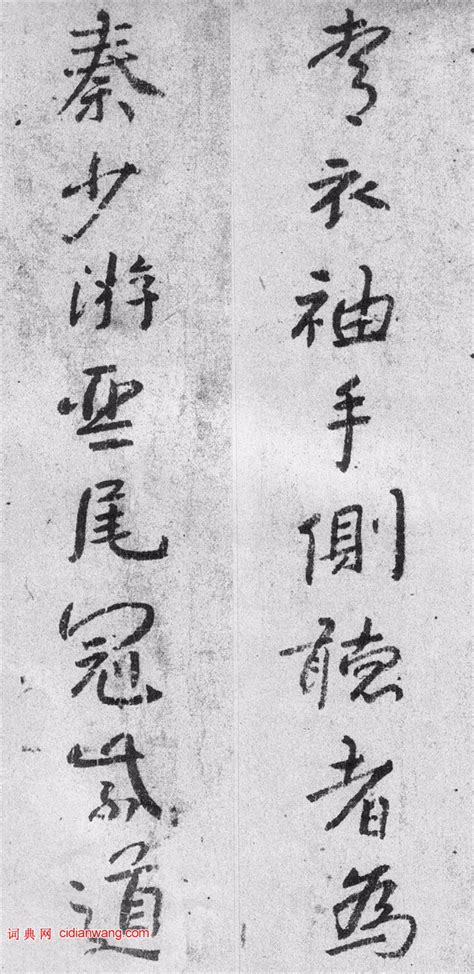 青衣袖手側聽者為
秦少游琴尾冠紫道
词典网 cidianwang.com